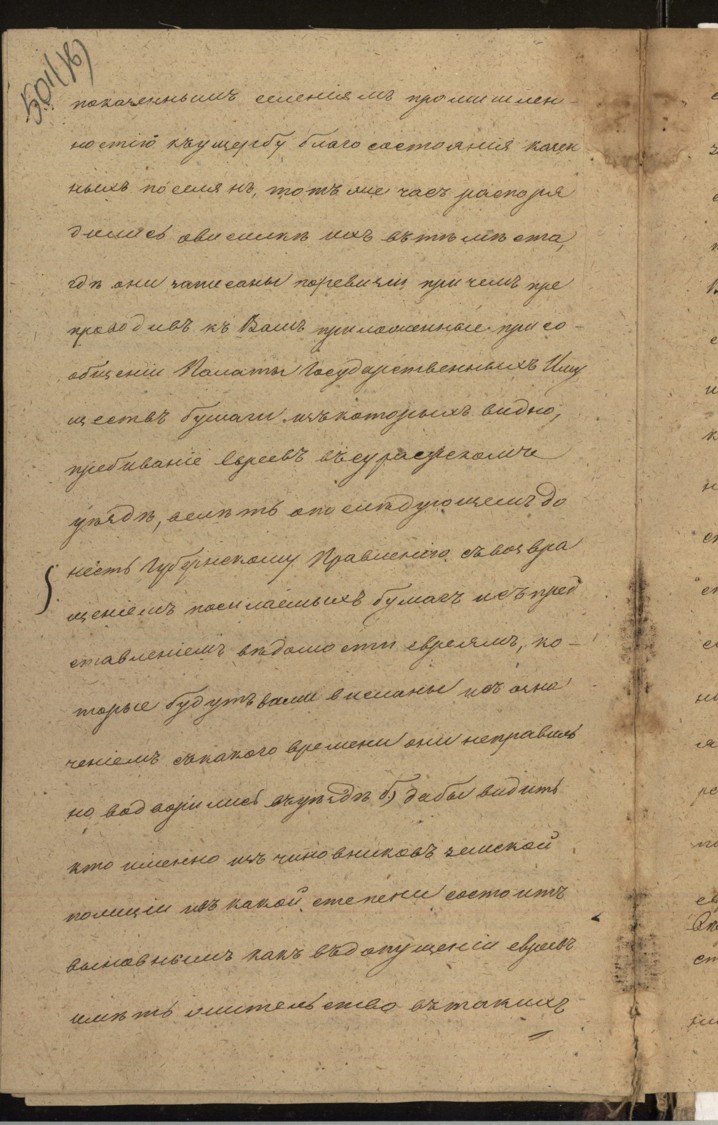 501 (об)
показеннымъ селеніямъ промышлен-
ностію къ ущербу благосостоянія казен
ныхъ поселянъ, тотъ же часъ распоря
дились о высилкѣ ихъ въ тѣ мѣста,
гдѣ они записаны по ревизіи причемъ пре
проводивъ къ Вамъ приложенныя при со-
общеніи Палаты Государственныхъ Иму
ществъ бумаги изъ которыхъ видно,
пребываніе евреевъ въ Суражскомъ
уѣздѣ, велѣть о послѣдующемъ до
несть Губернскому Правленію съ возвра
щеніемъ посылаемыхъ бумагъ и съ пред
ставленіемъ вѣдомости евреямъ, ко-
торые будутъ вами висланы и съ озна
ченіемъ съ какого времени они неправиль
но водворились въ уѣздѣ б) дабы видить
кто именно изъ чиновниковъ земской
полиціи и въ какой степени состоитъ
виновнымъ какъ въ допущеніи евреевъ
имѣть жительство въ такихъ